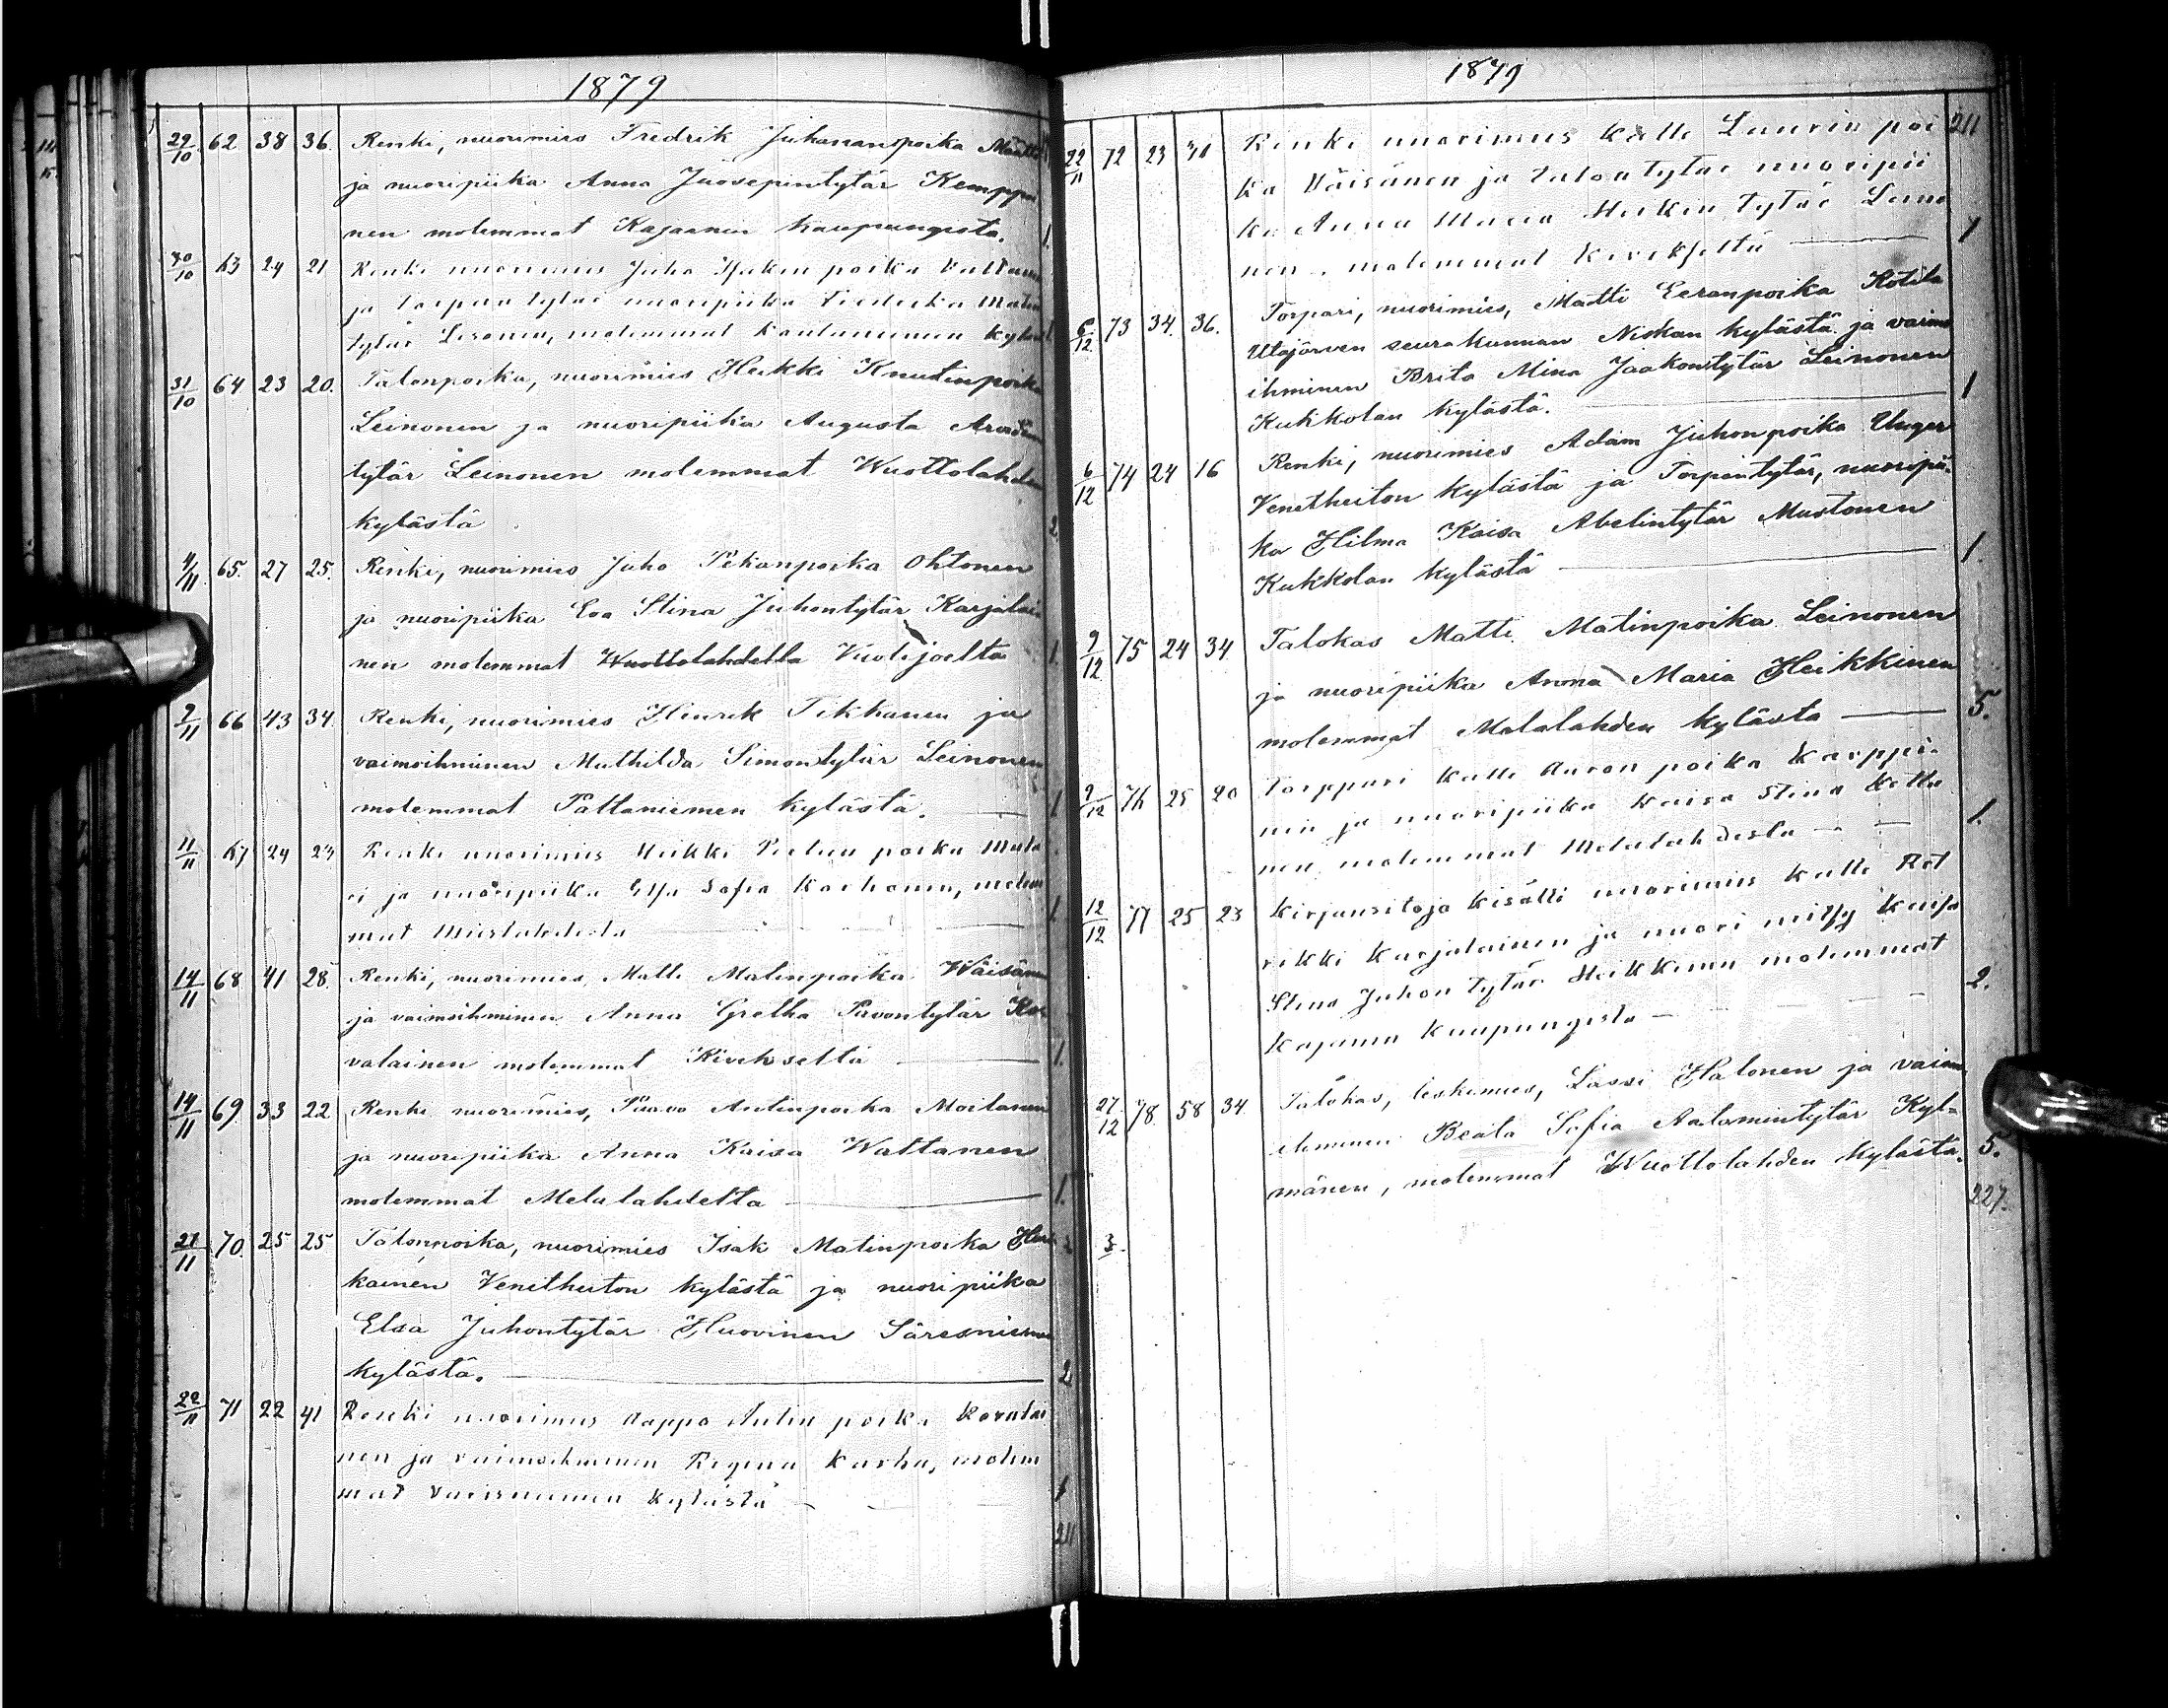 1879
29/10 62 38 36. Renki, nuorimies Fredrik Juhonanspoika Määttä
ja nuoripiika Anna Juosepintytär Kemppai
nen molemmat Kajaanin kaupungista. 1.
30/10 63 24 21 Renki nuorimies Juho Isakin poika
ja torpan tytär nuoripiika Fredrika Matin
tytär molemmat kylästä 1
31/10 64 23 20. Talonpoika, nuorimies Heikki Knutinpoika
Leinonen ja nuoripiika Augusta
tytär Leinonen molemmat Wuottolahden
kylästä 2
4/11 65. 27 25. Renki, nuorimies Juho Pekanpoika Ohtonen
ja nuoripiika Eva Stina Juhontytär Karjalai
nen molemmat Wuottolahdella Vuolijoelta 1.
7/11 66 43 34. Renki, nuorimies Henrik Tikkanen ja
vaimoihminen Mathilda Simontytär Leinonen
molemmat Paltaniemen kylästä. 1
11/11 67 24 23 Renki nuorimies Heikki poika
ri ja nuoripiika Sofia Karhonen, molem
mat 1.
14/11 68 41 28. Renki, nuorimies, Matti Matinpoika Wäisänen
ja vaimoihminen Anna Gretha Pavontytär Ko
valainen molemmat Kivekseltä 1.
14/11 69. 33 22 Renki nuorimies, Paavo Antinpoika Moilanen
ja nuoripiika Anna Kaisa Wattanen
molemmat Melalahdelta 1.
21/11 70. 25 25 Talonpoika, nuorimies Isak Matinpoika
kainen Venetheiton kylästä ja nuoripiika
Elsa Juhontytär Huovinen Säresniemen
kylästä. 2
22/11 71 22 41 Renki nuorimies Aappo Antin poika Kovalai
nen ja vaimoihminen Regina Karhu, molem
mat kylästä 1
211
1879
22/11 72 23 31 Renki nuorimies Kalle Laurin poi 211
ka Väisänen ja talon tytär nuoripii
ka Anna Maria Heikin tytär Leino
nen molemmat Kivekseltä 1
6/12 73 34. 36. Torpari, nuorimies, Matti Eeranpoika Kotila
Utajärven seurakunnan Niskan kylästä ja vaimo
ihminen Brita Mina Jaakontytär Leinonen
Kukkolan kylästä. 1
6/12 74 24 16 Renki, nuorimies Adam Juhonpoika Unger
Venetheiton kylästä ja Torpintytär, nuoripii
ka Hilma Kaisa Abelintytär Mustonen
Kukkolan kylästä 1.
9/12 75 24 34. Talokas Matti Matinpoika Leinonen
ja nuoripiika Anna Maria Heikkinen
molemmat Melalahden kylästä 5.
9/12 76 25 20 Torppari Kalle Aaron poika Karppi-
nen ja nuoripiika Kaisa Stina
nen molemmat Melalahdesta 1.
12/12 77 25 23 Kirjansitoja kisälli nuorimies Kalle Ret
rikki Karjalainen ja nuori neitsy Kaisa
Stina Juhon tytär Heikkinen molemmat
Kajanin kaupungista 2.
27/12 78. 58 34. Talokas, leskimies, Lassi Halonen ja vaimo
ihminen Beata Sofia Aatamintytär Kyl=
mänen, molemmat Wuottolahden kylästä. 5.
227.
3.